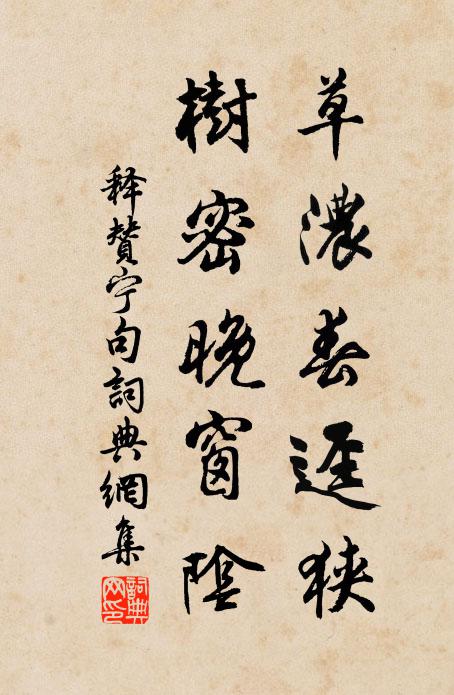 草濃春逕狹
樹密晚窗陰
释賛宁句詞典網集
詞典
网印